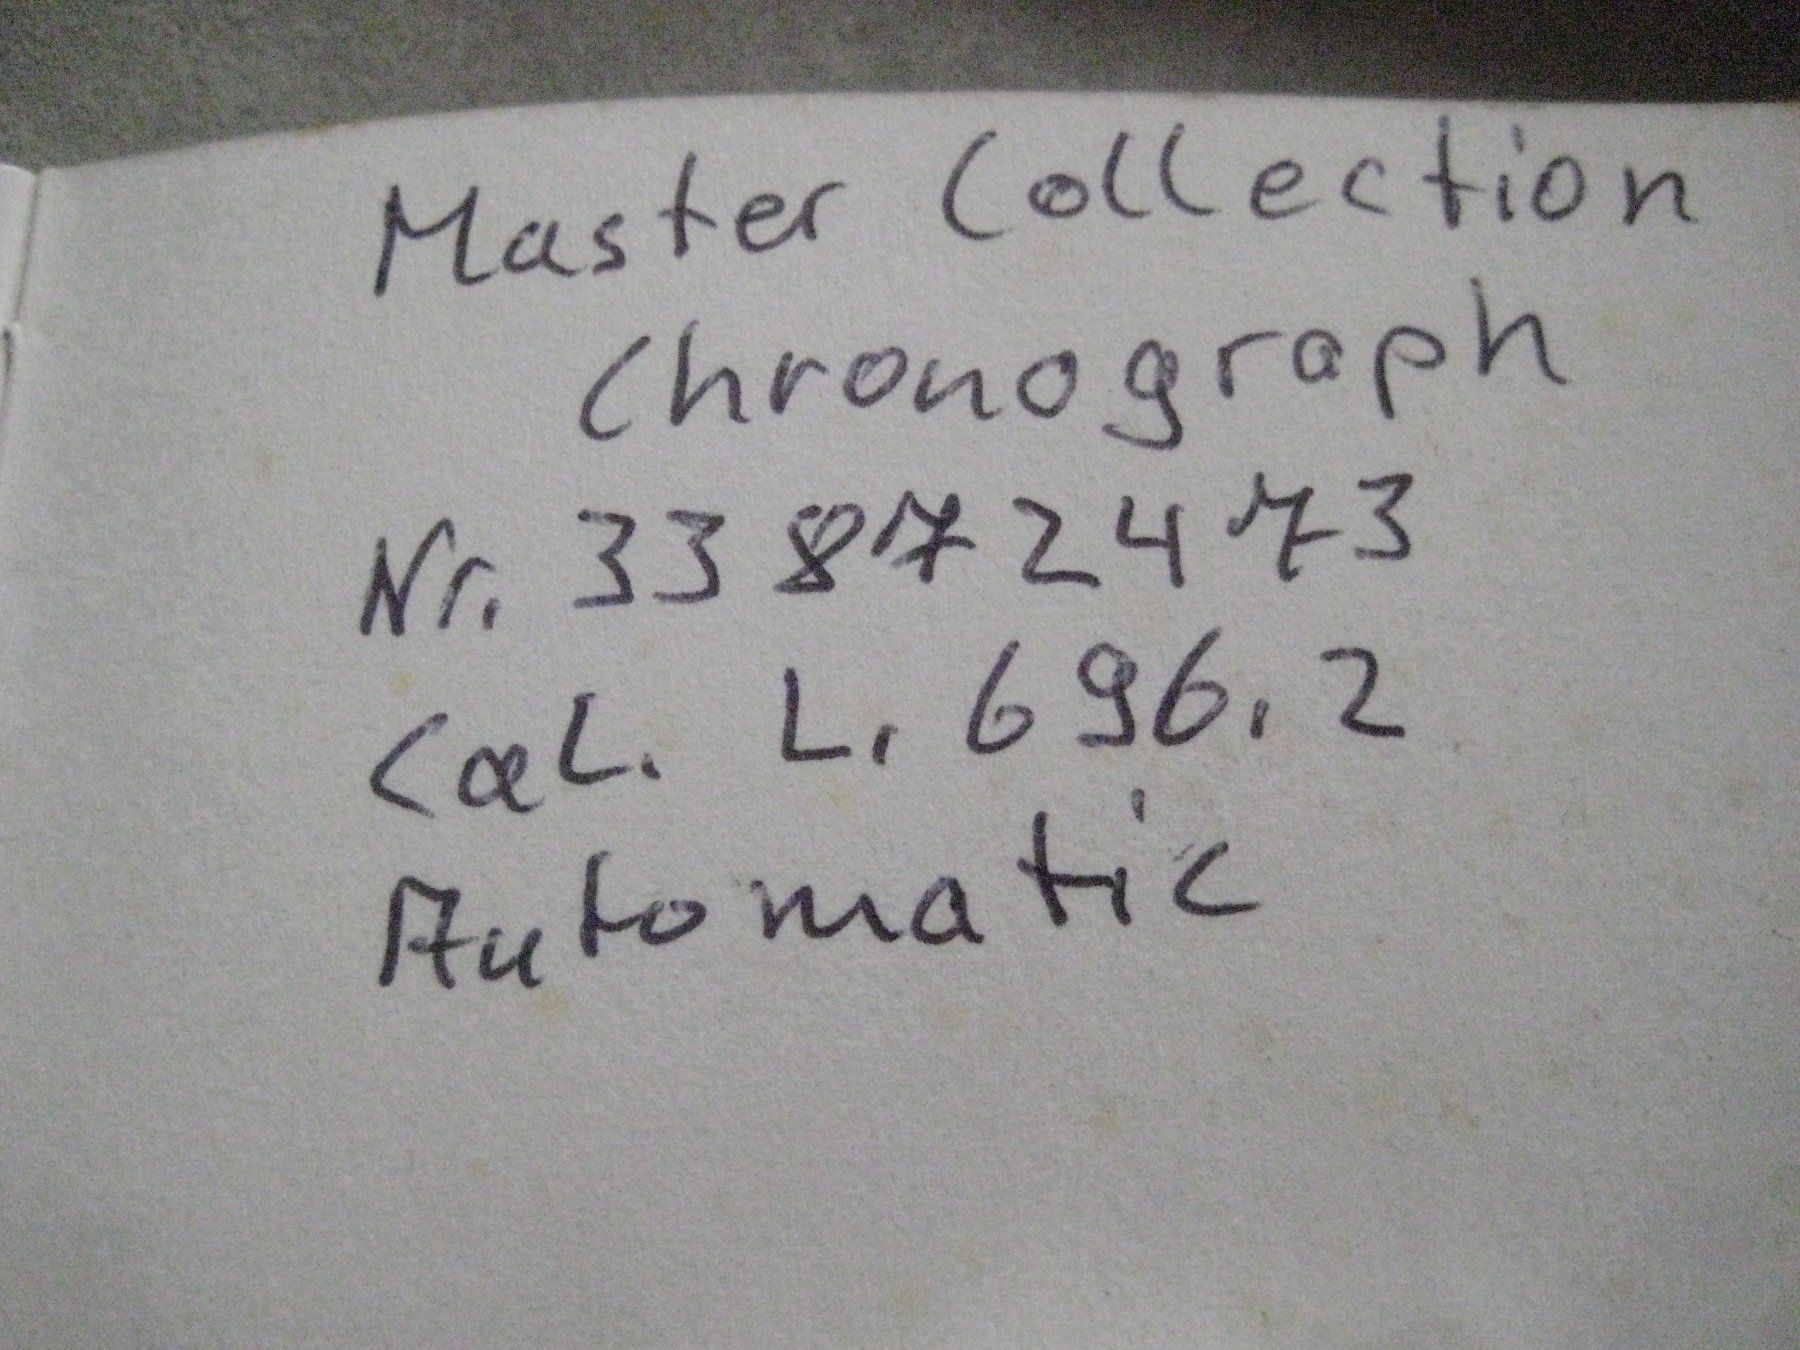 Master Collection
Chronograph
Nr. 33872473
Cal. L. 696.2
Automatic